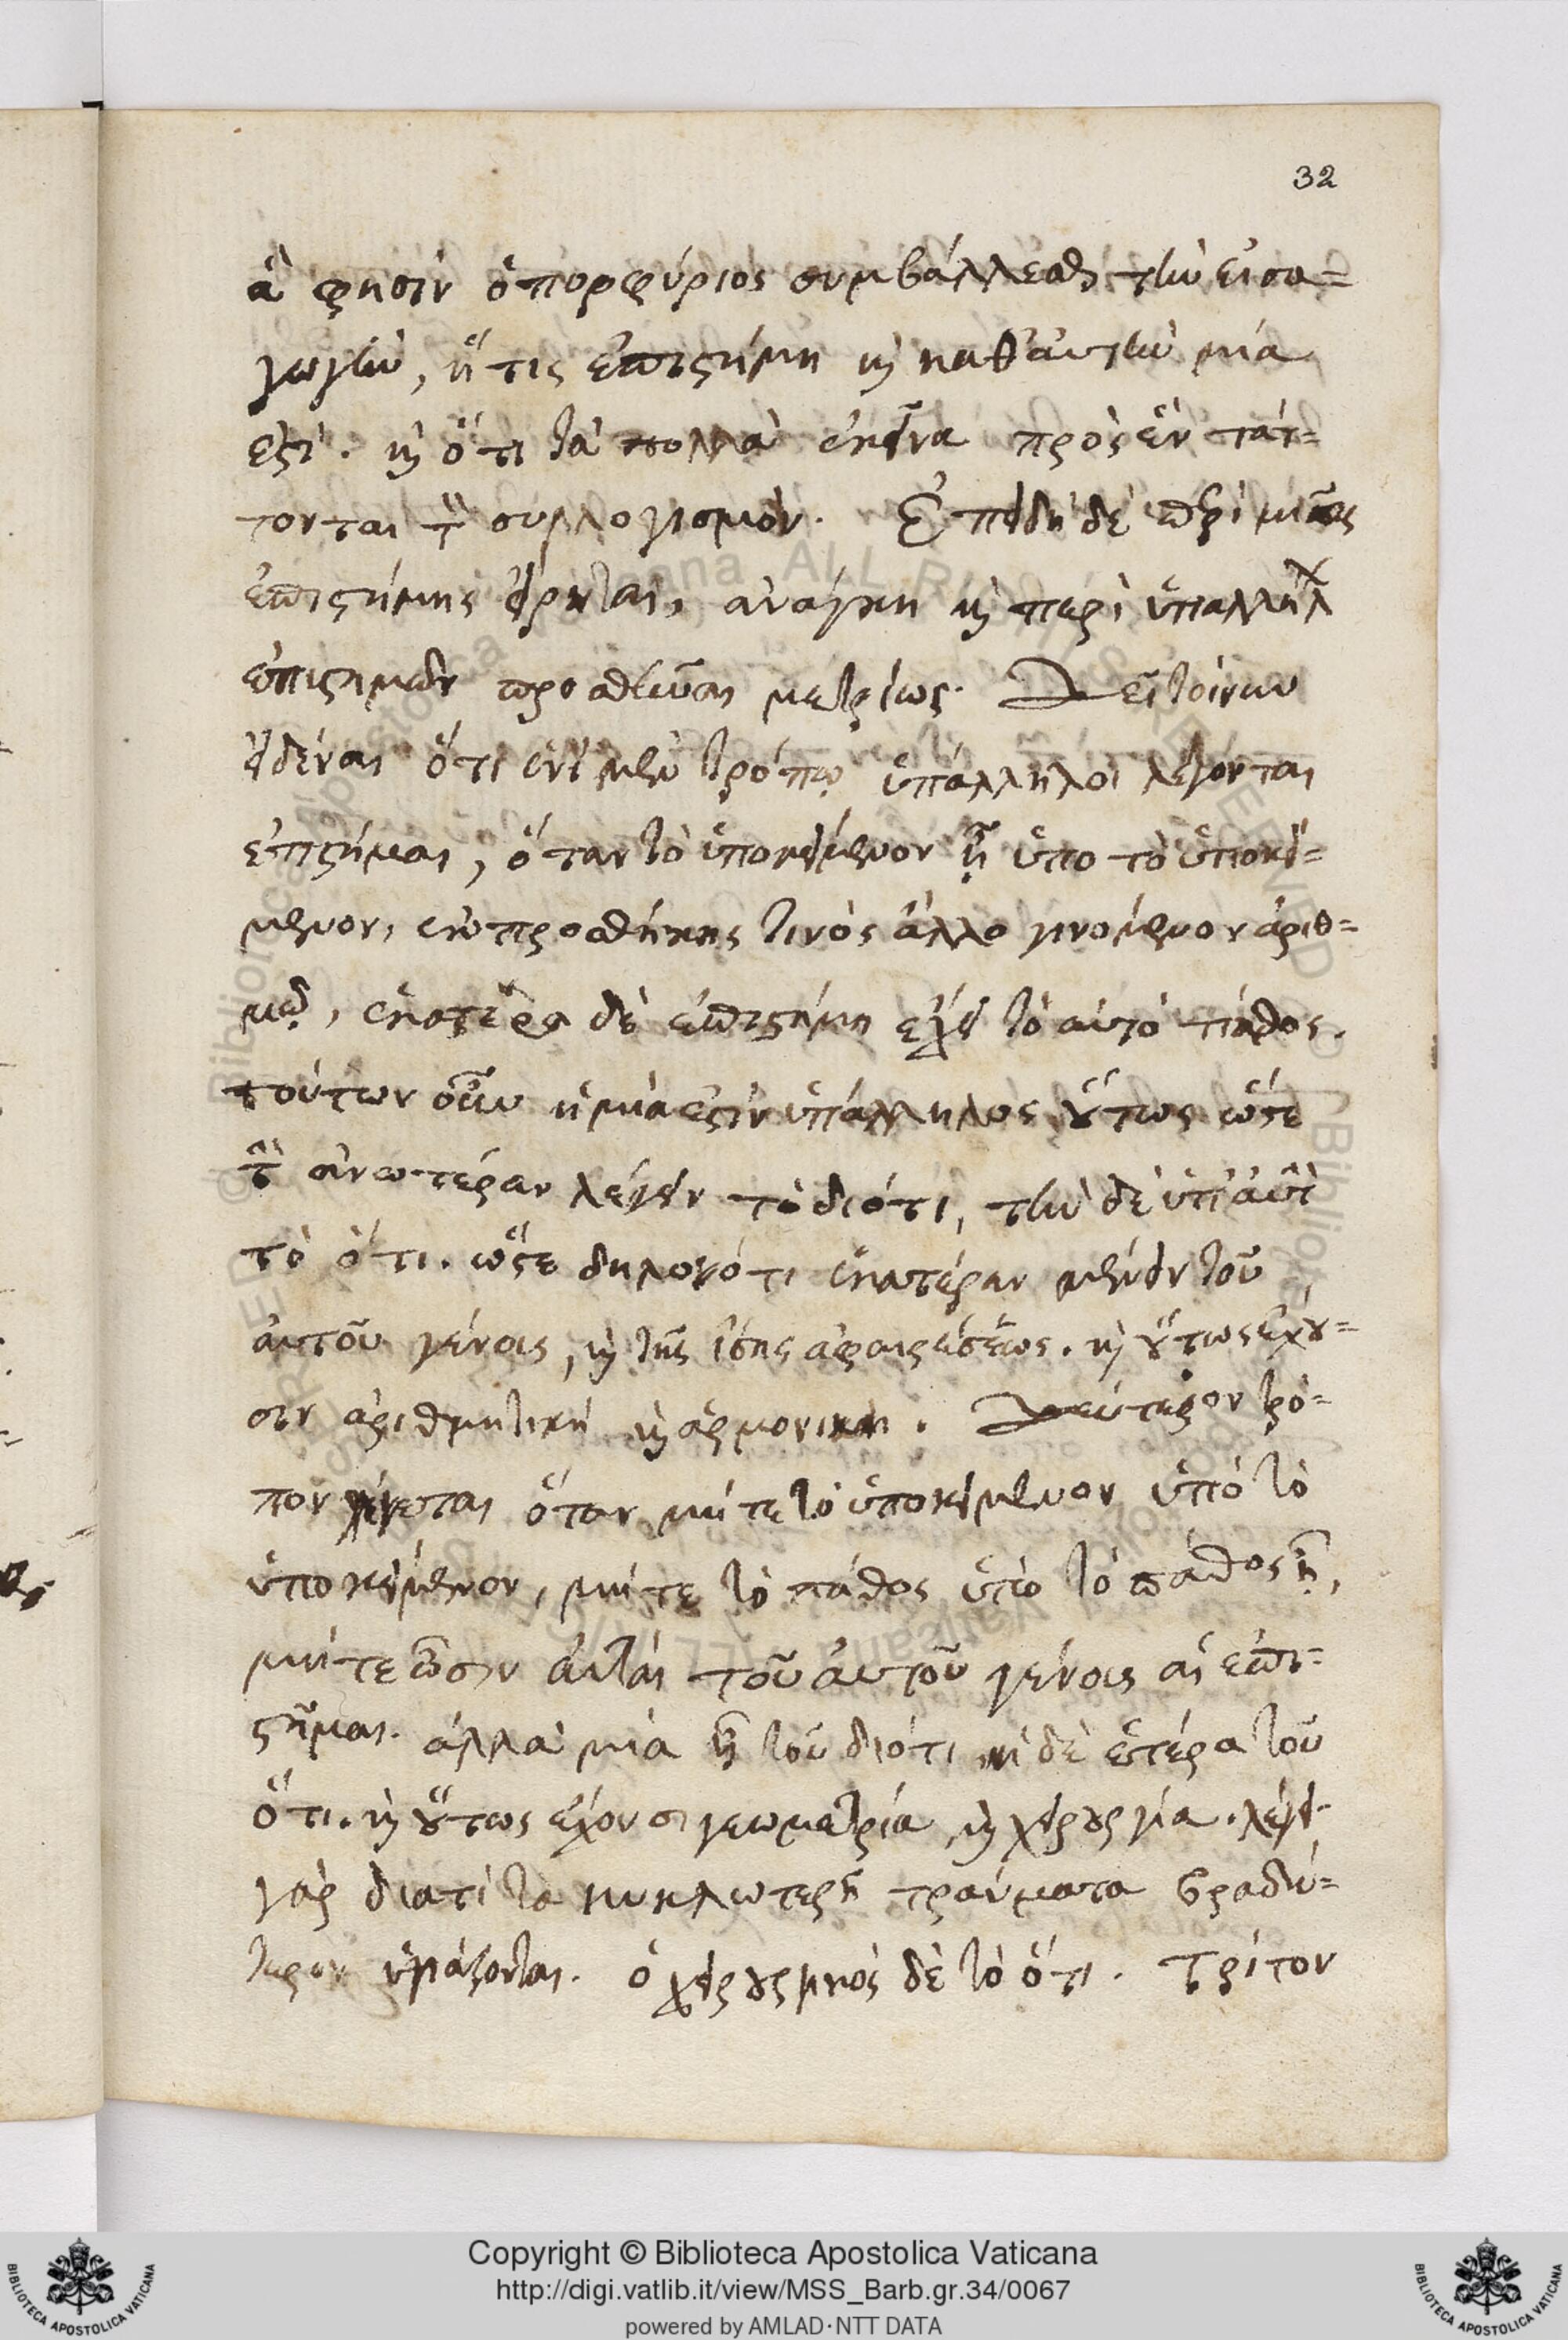 32
ἃ φησὶν ὁ πορφύριος συμβάλλεσθαι τὴν εἰσα=
γωγὴν, ἥτις ἐπιστήμη καὶ καθ' αὑτὴν μία
ἐστὶ. καὶ ὅτι τὰ πολλὰ ἐκεῖνα πρὸς ἓν τάτ=
τονται τὸν συλλογισμὸν. Ἐπειδὴ δὲ περὶ μιᾶς
ἐπιστήμης εἴρηται, ἀνάγκη καὶ περὶ ὑπαλλήλων
ἐπιστημῶν προσθεῖναι μετρίως. Δεῖ τοίνυν
εἰδέναι ὅτι ἑνὶ μὲν τρόπῳ ὑπάλληλοι λέγονται
ἐπιστήμαι, ὅταν τὸ ὑποκείμενον ᾖ ὑπὸ τὸ ὑποκεί=
μενον, ἐκ προσθήκης τινὸς ἄλλο γινόμενον ἀριθ=
μῷ, ἑκατέρα δὲ ἐπιστήμη ἔχει τὸ αὐτὸ πάθος.
τούτων οὖν ἡ μία ἐστὶν ὑπάλληλος οὕτως ὥστε
τὴν ἀνωτέραν λέγειν τὸ διότι, τὴν δὲ ὑπ' αὐτὴν
τὸ ὅτι. ὥστε δηλονότι ἑκατέραν μένειν τοῦ
αὐτοῦ γένους, καὶ τῆς ἴσης ἀφαιρέσεως. καὶ οὕτως ἔχου=
σιν ἀριθμητικὴ καὶ ἁρμονική. Δεύτερον τρό=
πον γίνεται ὅταν μήτε τὸ ὑποκείμενον ὑπὸ τὸ
ὑποκείμενον, μήτε τὸ πάθος ὑπὸ τὸ πάθος ᾖ,
μήτε ὦσιν αὗται τοῦ αὐτοῦ γένους αἱ ἐπι=
στῆμαι. ἀλλὰ μία ᾖ τοῦ διότι ἡ δὲ ἑτέρα τοῦ
ὅτι. καὶ οὕτως ἔχουσι γεωμετρία καὶ χειρουργία. λέγει
γὰρ διατί τὰ κυκλωτερῆ τραύματα βραδύ=
τερον ὑγιάζονται. ὁ χειρουργικὸς δὲ τὸ ὅτι. τρίτον
Copyright © Biblioteca Apostolica Vaticana
http://digi.vatlib.it/view/MSS_Barb.gr.34/0067
powered by AMLAD·NTT DATA